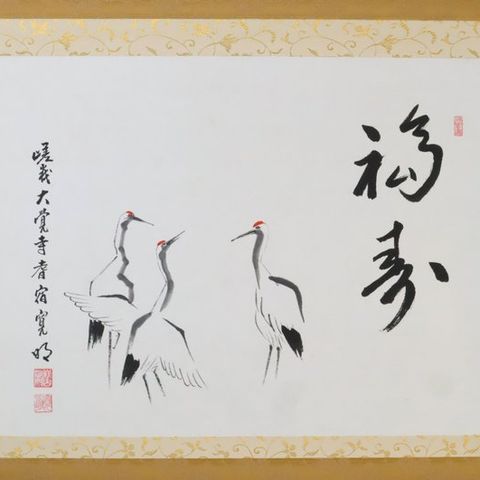 福寿
嵯峨大覚寺耆宿寛明